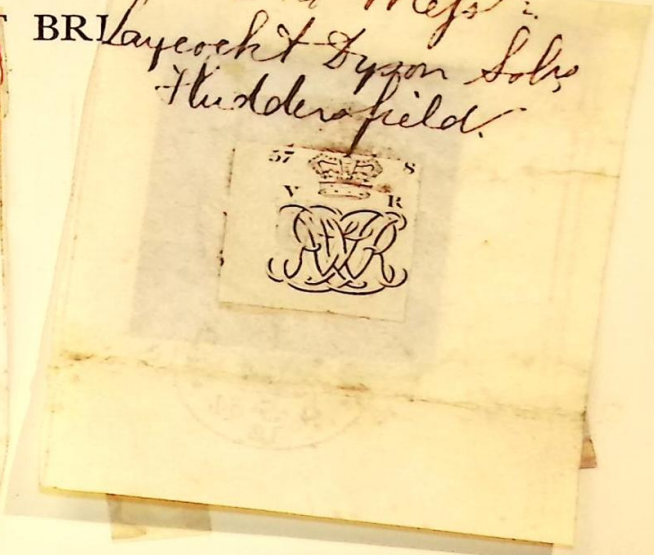 Messrs
BRI
Laycock & Dyson Solrs
Huddersfield.
57 8
V R